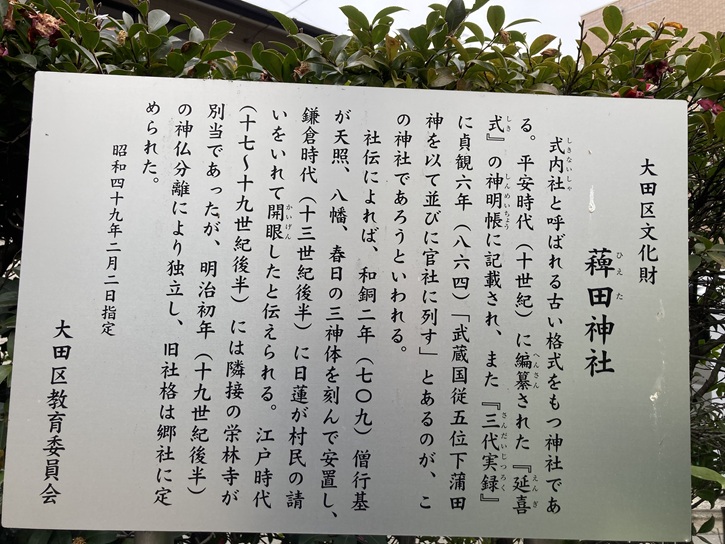 大田区文化財
薭田神社
ひえた
式内社と呼ばれる古い格式をもつ神社であ
しきないしゃ
る。平安時代（十世紀）に編纂された『延喜
へんさん
えんぎ
式』の神明帳に記載され、また『三代実録』
しき
しんめいちょう
さんだいじつろく
に貞観六年（八六四）「武蔵国従五位下蒲田
神を以て並びに官社に列す」とあるのが、こ
の神社であろうといわれる。
社伝によれば、和銅二年（七〇九）僧行基
が天照、八幡、春日の三神体を刻んで安置し、
鎌倉時代（十三世紀後半）に日蓮が村民の請
いをいれて開眼したと伝えられる。江戸時代
かいげん
（十七～十九世紀後半）には隣接の栄林寺が
別当であったが、明治初年（十九世紀後半）
の神仏分離により独立し、旧社格は郷社に定
められた。
昭和四十九年二月二日指定
大田区教育委員会